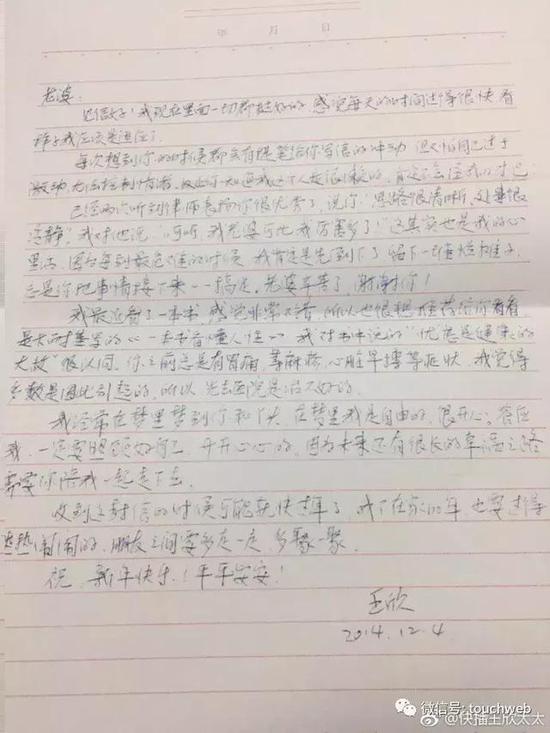 年 月 日
老婆:
见信好!我现在里面一切都挺好的,感觉每天的时间过得很快,看
样子我应该是适应了。
每次想到你的时候都会有提笔给你写信的冲动,但又怕自己过于
激动无法控制情绪,
已经两次听到律师表扬你很优秀了,说你:"思路很清晰,处事很
冷静"我对他说:"可听,我老婆可比我厉害多了"这其实也是我的心
里话,因为每到最危难的时候,我肯定是先倒下了,留下一堆烂摊子,
总是你把事情接下来一一搞定,老婆辛苦了,谢谢你!
我最近看了一本书,感觉非常不错,所以也很想推荐给你看看,
是卡耐基写的《一本书看懂人性》我对书中说的"忧虑是健康的
大敌"很认同,你之前总是有胃痛,荨麻疹,心脏早搏等症状,我觉得
多数是因此引起的,所以光去医院是治不好的。
我经常在梦里梦到你和,在梦里我是自由的,很开心。答应
我,一定要照顾好自己,开开心心的,因为未来还有很长的幸福之路
需要你陪我一起走下去。
收到这封信的时候可能就快过年了,我不在家的年也要过得
热热闹闹的,朋友之间要多走一走,多聚一聚。
祝:新年快乐!平平安安!
王欣
2014.12.4
微信号: touchweb
@快播王欣太太